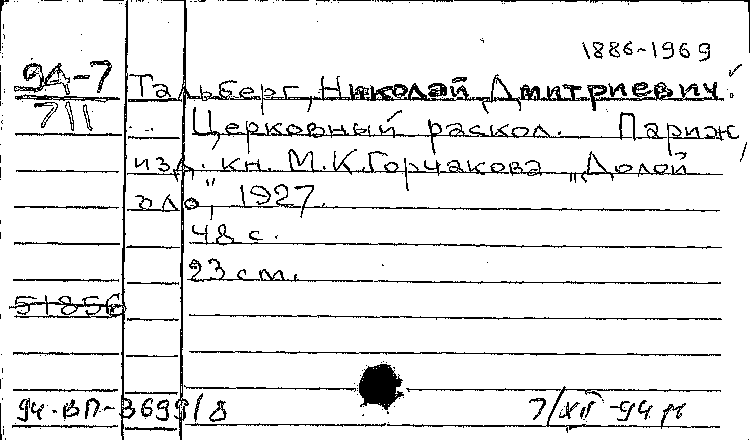 1886-1969
94-7 Тальберг, Николай Дмитриевич.
711 Церковный раскол. Париж,
изд. кн. М.К.Горчакова „Долой
зло", 1927.
48 с.
23 cm.
51856
94-ВП-3699/8 7/XII-94